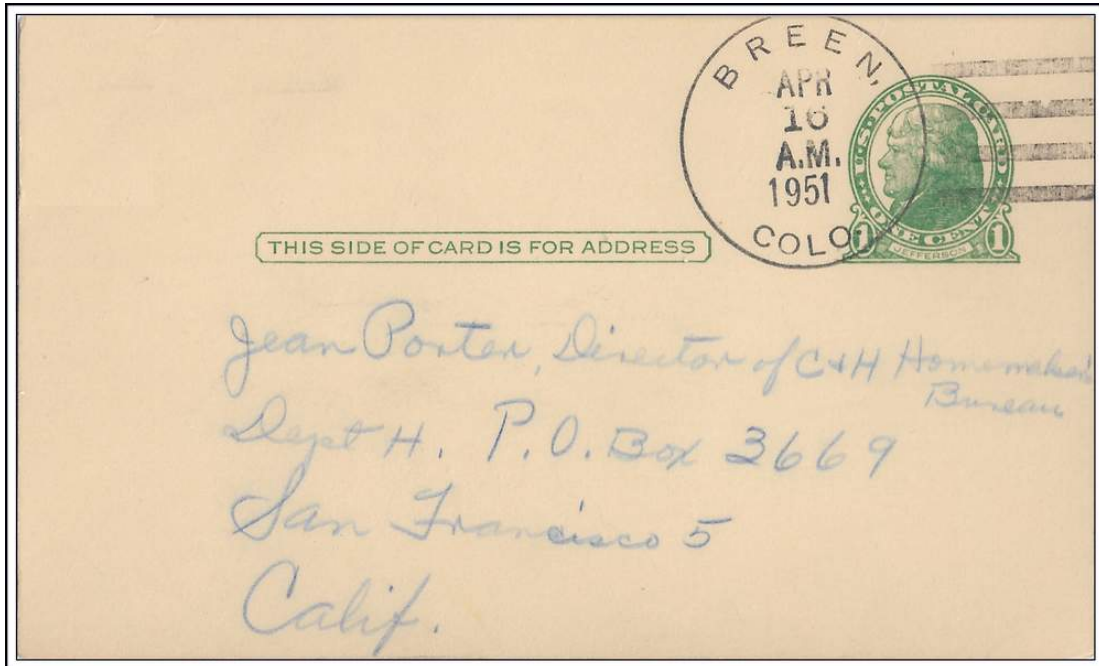 BREEN,
APR
16
A.M.
1951
COLO.
U.S. POSTAL CARD
ONE CENT
1 JEFFERSON 1
THIS SIDE OF CARD IS FOR ADDRESS
Jean Porter, Director of C&H Homemakers
Bureau
Dept H. P.O. Box 3669
San Francisco 5
Calif.